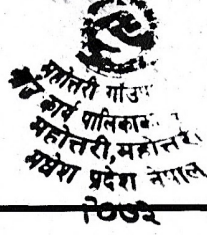 महोत्तरी गाउँपा
गाउँ कार्यपालिकाको
महोत्तरी, महोत्तरी
मधेश प्रदेश नेपाल
२०७३